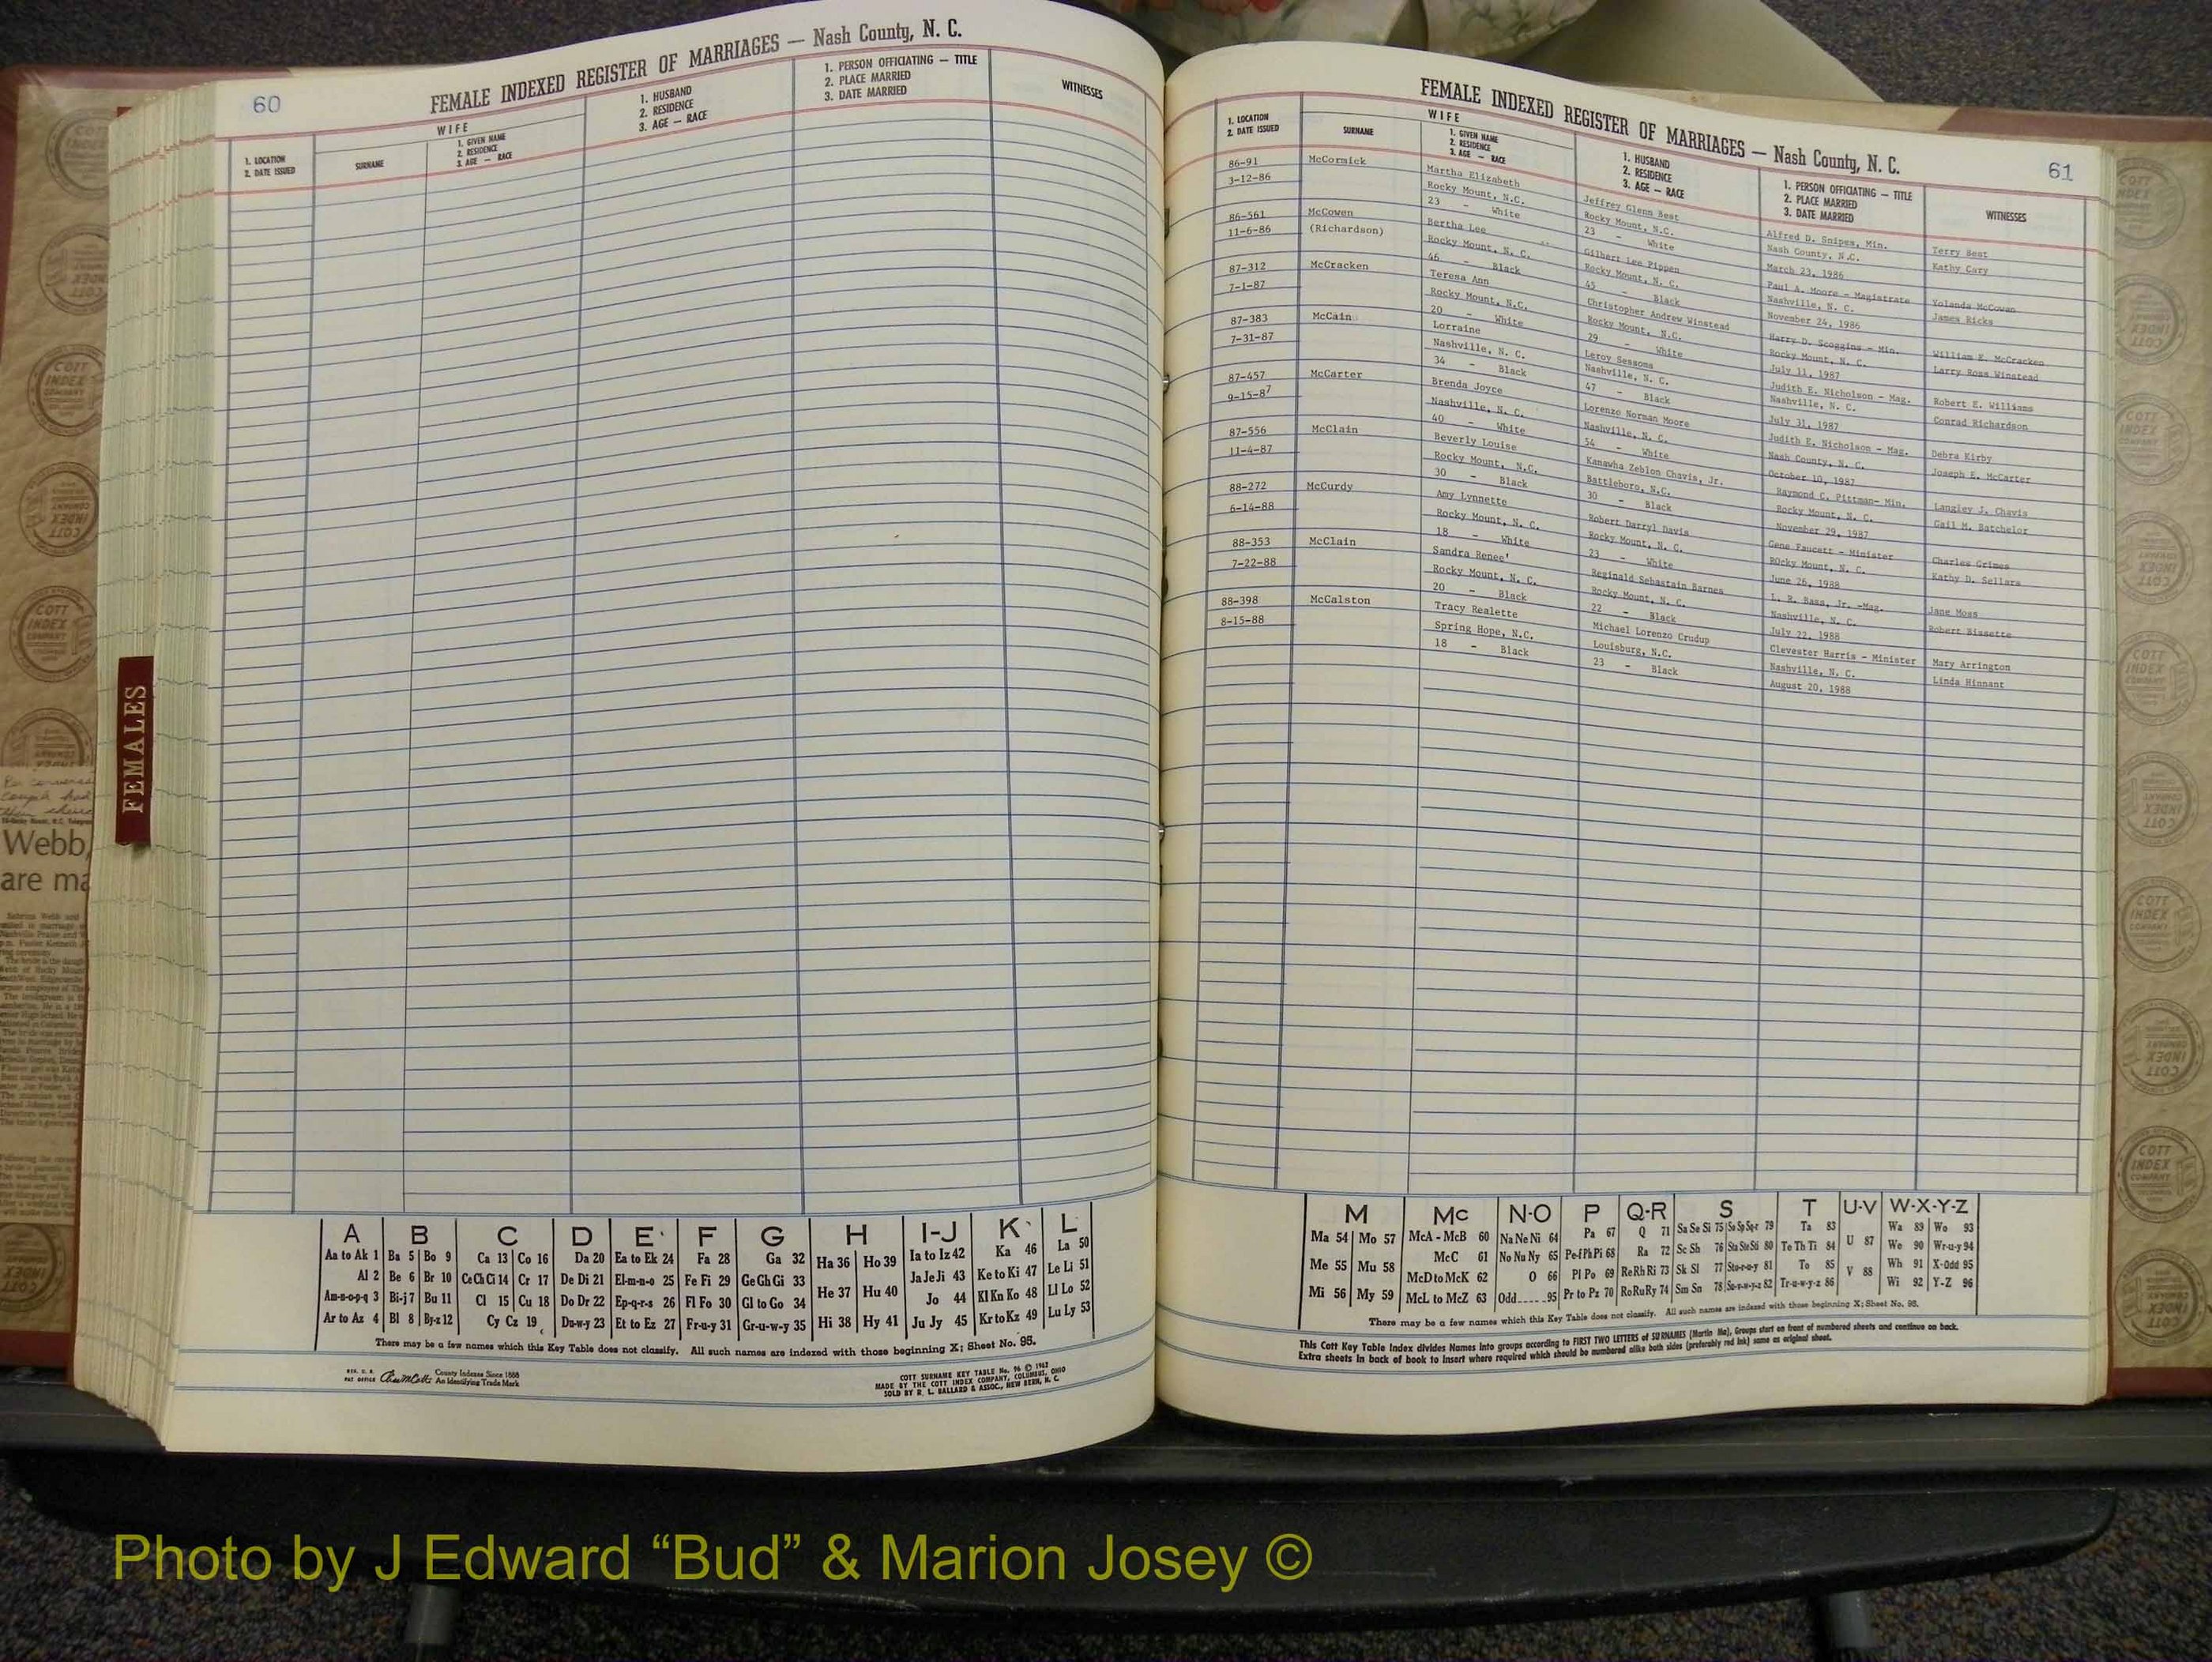 60
FEMALE INDEXED REGISTER OF MARRIAGES — Nash County, N. C.
1. LOCATION
2. DATE ISSUED
WIFE
SURNAME
1. GIVEN NAME
2. RESIDENCE
3. AGE — RACE
1. HUSBAND
2. RESIDENCE
3. AGE — RACE
1. PERSON OFFICIATING — TITLE
2. PLACE MARRIED
3. DATE MARRIED
WITNESSES
A B C D E F G H I-J K L
Aa to Ak 1 Ba 5 Bo 9 Ca 13 Co 16 Da 20 Ea to Ek 24 Fa 28 Ga 32 Ha 36 Ho 39 Ia to Iz 42 Ka 46 La 50
Al 2 Be 6 Br 10 Ce Ch Ci 14 Cr 17 De Di 21 El-m-n-o 25 Fe Fi 29 Ge Gh Gi 33 He 37 Hu 40 Ja Je Ji 43 Ke to Ki 47 Le Li 51
Am-n-o-p-q 3 Bi-j 7 Bu 11 Cl 15 Cu 18 Do Dr 22 Ep-q-r-s 26 Fl Fo 30 Gl to Go 34 Hi 38 Hy 41 Jo 44 Kl Kn Ko 48 Ll Lo 52
Ar to Az 4 Bl 8 By-z 12 Cy Cz 19 Du-w-y 23 Et to Ez 27 Fr-u-y 31 Gr-u-w-y 35 Ju Jy 45 Kr to Kz 49 Lu Ly 53
There may be a few names which this Key Table does not classify. All such names are indexed with those beginning X; Sheet No. 95.
County Indexes Since 1888
PAT OFFICE An Identifying Trade Mark
COTT SURNAME KEY TABLE No. 96 © 1962
MADE BY THE COTT INDEX COMPANY, COLUMBUS, OHIO
SOLD BY R. L. BALLARD & ASSOC., NEW BERN, N. C.
FEMALES
Webb,
are ma
FEMALE INDEXED REGISTER OF MARRIAGES — Nash County, N. C.
61
1. LOCATION
2. DATE ISSUED
WIFE
SURNAME
1. GIVEN NAME
2. RESIDENCE
3. AGE — RACE
1. HUSBAND
2. RESIDENCE
3. AGE — RACE
1. PERSON OFFICIATING — TITLE
2. PLACE MARRIED
3. DATE MARRIED
WITNESSES
86-91 McCormick Martha Elizabeth Jeffrey Glenn Best Alfred D. Snipes, Min. Terry Best
3-12-86 Rocky Mount, N.C. Rocky Mount, N.C. Nash County, N.C. Kathy Cary
23 - White 23 - White March 23, 1986
86-561 McCowen Bertha Lee Gilbert Lee Pippen Paul A. Moore - Magistrate Yolanda McCowan
11-6-86 (Richardson) Rocky Mount, N. C. Rocky Mount, N. C. Nashville, N. C. James Ricks
46 - Black 45 - Black November 24, 1986
87-312 McCracken Teresa Ann Christopher Andrew Winstead Harry D. Scoggins - Min. William E. McCracken
7-1-87 Rocky Mount, N.C. Rocky Mount, N.C. Rocky Mount, N. C. Larry Ross Winstead
20 - White 29 - White July 11, 1987
87-383 McCain Lorraine Leroy Sessoms Judith E. Nicholson - Mag. Robert E. Williams
7-31-87 Nashville, N. C. Nashville, N. C. Nashville, N. C. Conrad Richardson
34 - Black 47 - Black July 31, 1987
87-457 McCarter Brenda Joyce Lorenzo Norman Moore Judith E. Nicholson - Mag. Debra Kirby
9-15-87 Nashville, N. C. Nashville, N. C. Nash County, N. C. Joseph E. McCarter
40 - White 54 - White October 10, 1987
87-556 McClain Beverly Louise Kanawha Zeblon Chavis, Jr. Raymond C. Pittman- Min. Langley J. Chavis
11-4-87 Rocky Mount, N.C. Battleboro, N.C. Rocky Mount, N. C. Gail M. Batchelor
30 - Black 30 - Black November 29, 1987
88-272 McCurdy Amy Lynnette Robert Darryl Davis Gene Faucett - Minister Charles Grimes
6-14-88 Rocky Mount, N. C. Rocky Mount, N. C. ROcky Mount, N. C. Kathy D. Sellars
18 - White 23 - White June 26, 1988
88-353 McClain Sandra Renee' Reginald Sebastain Barnes L. R. Bass, Jr. -Mag. Jane Moss
7-22-88 Rocky Mount, N. C. Rocky Mount, N. C. Nashville, N. C. Robert Bissette
20 - Black 22 - Black July 22, 1988
88-398 McCalston Tracy Realette Michael Lorenzo Crudup Clevester Harris - Minister Mary Arrington
8-15-88 Spring Hope, N.C. Louisburg, N.C. Nashville, N. C. Linda Hinnant
18 - Black 23 - Black August 20, 1988
M Mc N-O P Q-R S T U-V W-X-Y-Z
Ma 54 Mo 57 McA - McB 60 Na Ne Ni 64 Pa 67 Q 71 Sa Se Si 75 So Sp Sq-r 79 Ta 83 U 87 Wa 89 Wo 93
Me 55 Mu 58 McC 61 No Nu Ny 65 Pe-f Ph Pi 68 Ra 72 Sc Sh 76 Sta Ste Sti 80 Te Th Ti 84 V 88 We 90 Wr-u-y 94
Mi 56 My 59 McD to McK 62 O 66 Pl Po 69 Re Rh Ri 73 Sk Sl 77 Sto-r-u-y 81 To 85 Wh 91 X-Odd 95
McL to McZ 63 Odd 95 Pr to Pz 70 Ro Ru Ry 74 Sm Sn 78 Su-v-w-y-z 82 Tr-u-w-y-z 86 Wi 92 Y-Z 96
There may be a few names which this Key Table does not classify. All such names are indexed with those beginning X; Sheet No. 95.
This Cott Key Table Index divides Names into groups according to FIRST TWO LETTERS of SURNAMES (Martin Ma), Groups start on front of numbered sheets and continue on back.
Extra sheets in back of book to insert where required which should be numbered alike both sides (preferably red ink) same as original sheet.
Photo by J Edward “Bud” & Marion Josey ©